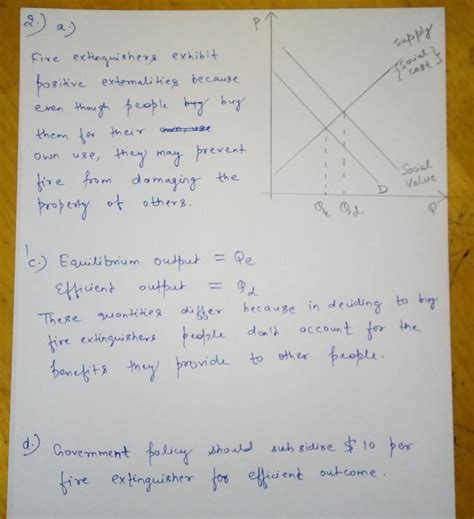 2.) a.)
Fire extinguishers exhibit
positive externalities because
even though people buy
them for their
own use, they may prevent
fire from damaging the
property of others.
P
Supply
{social
cost}
Social
Value
D
Qe
Qd
Q
c.) Equilibrium output = Qe
Efficient output = Qd
These quantities differ because in deciding to buy
fire extinguishers people don't account for the
benefits they provide to other people.
d.) Government policy should subsidise $ 10 per
fire extinguisher for efficient outcome.